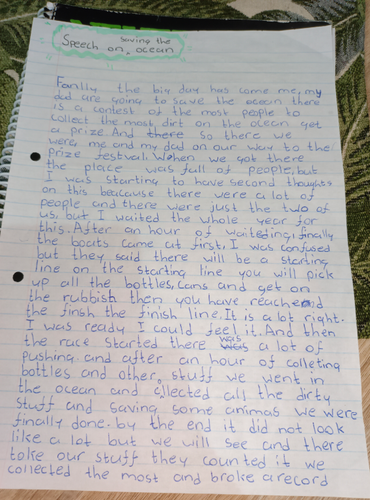 saving the
Speech on ocean
Fanlly the big day has come me, my
dad are going to save the ocean there
is a contest of the most people to
collect the most dirt on the ocean get
a prize. And there so there we
were me and my dad on our way to the
prize festvall. When we got there
the place was full of people, but
I was starting to have second thoughts
on this beacause there were a lot of
people and there were just the two of
us, but I waited the whole year for
this. After an hour of waiteding, finally
the boats came at first, I was confused
but they said there will be a starting
line on the starting line you will pick
up all the bottles, cans and get on
the rubbish then you have reached
the finsh the finish line. It is a lot right.
I was ready I could feel it. And then
the race started there was a lot of
pushing. and after an hour of colleting
bottles and other stuff we went in
the ocean and collected all the dirty
stuff and saving some animas we were
finally done. by the end it did not look
like a lot but we will see and there
toke our stuff they counted it we
collected the most and broke a record